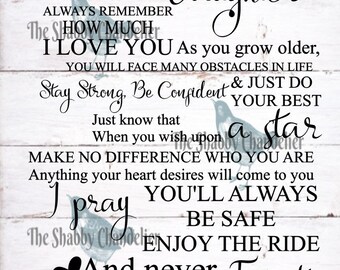 ALWAYS REMEMBER
HOW MUCH
I LOVE YOU As you grow older,
YOU WILL FACE MANY OBSTACLES IN LIFE
Stay Strong, Be Confident & JUST DO
YOUR BEST
Just know that
When you wish upon a star
The Shabby Chandelier
MAKE NO DIFFERENCE WHO YOU ARE
Anything your heart desires will come to you
I pray YOU'LL ALWAYS
BE SAFE
The Shabby Chandelier
ENJOY THE RIDE
And never